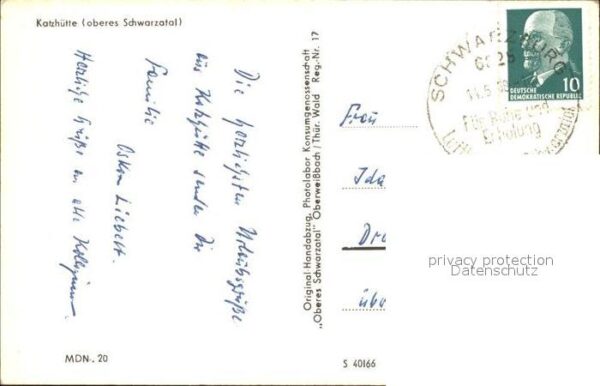 Katzhütte (oberes Schwarzatal)
Die herzlichsten Urlaubsgrüße
aus Katzhütte sendet Dir
Familie
Oskar Liebert.
Herzliche Grüße an alle Kolleginnen.
MDN-. 20
Original Handabzug, Photolabor Konsumgenossenschaft
„Oberes Schwarzatal" Oberweißbach/Thür. Wald Reg.-Nr. 17
S 40166
SCHWARZBURG
Für Ruhe und
Erholung
10
DEUTSCHE
DEMOKRATISCHE REPUBLIK
Frau
Ida
Dre
übe
privacy protection
Datenschutz